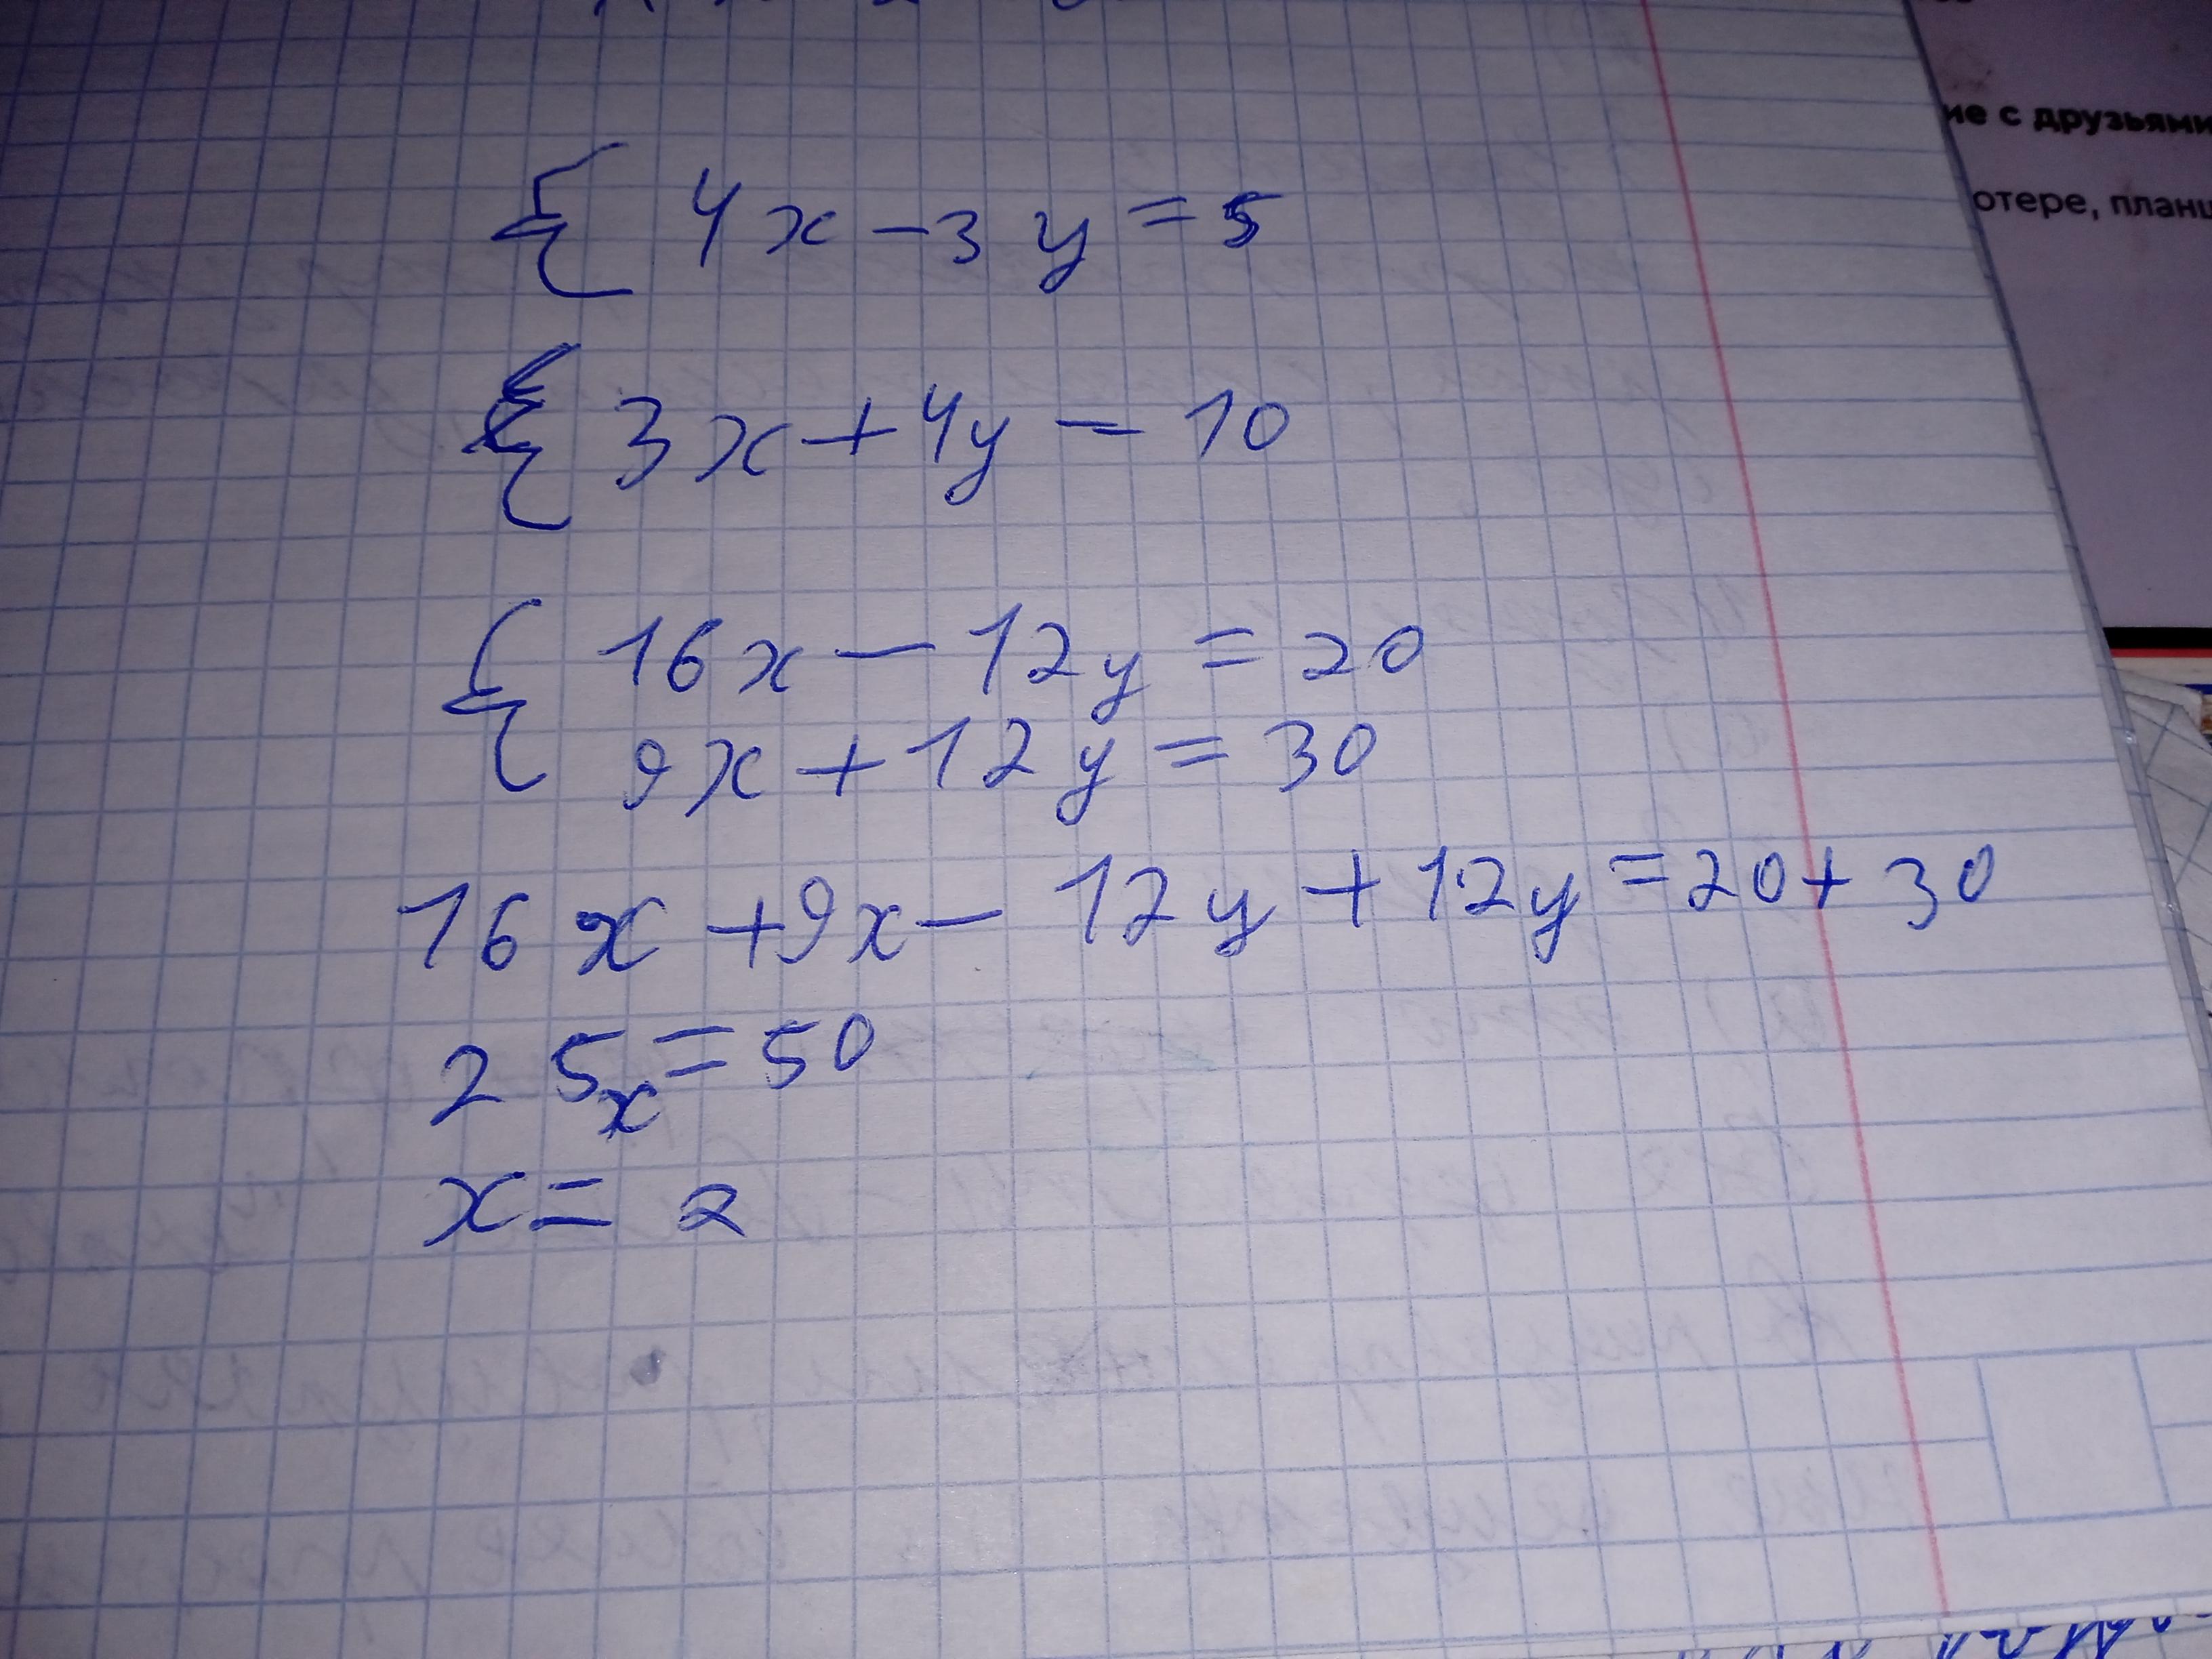 ие с друзьями
отере, план
{ 4x - 3y = 5
{ 3x + 4y = 10
{ 16x - 12y = 20
9x + 12y = 30
16x + 9x - 12y + 12y = 20 + 30
25x = 50
x = 2